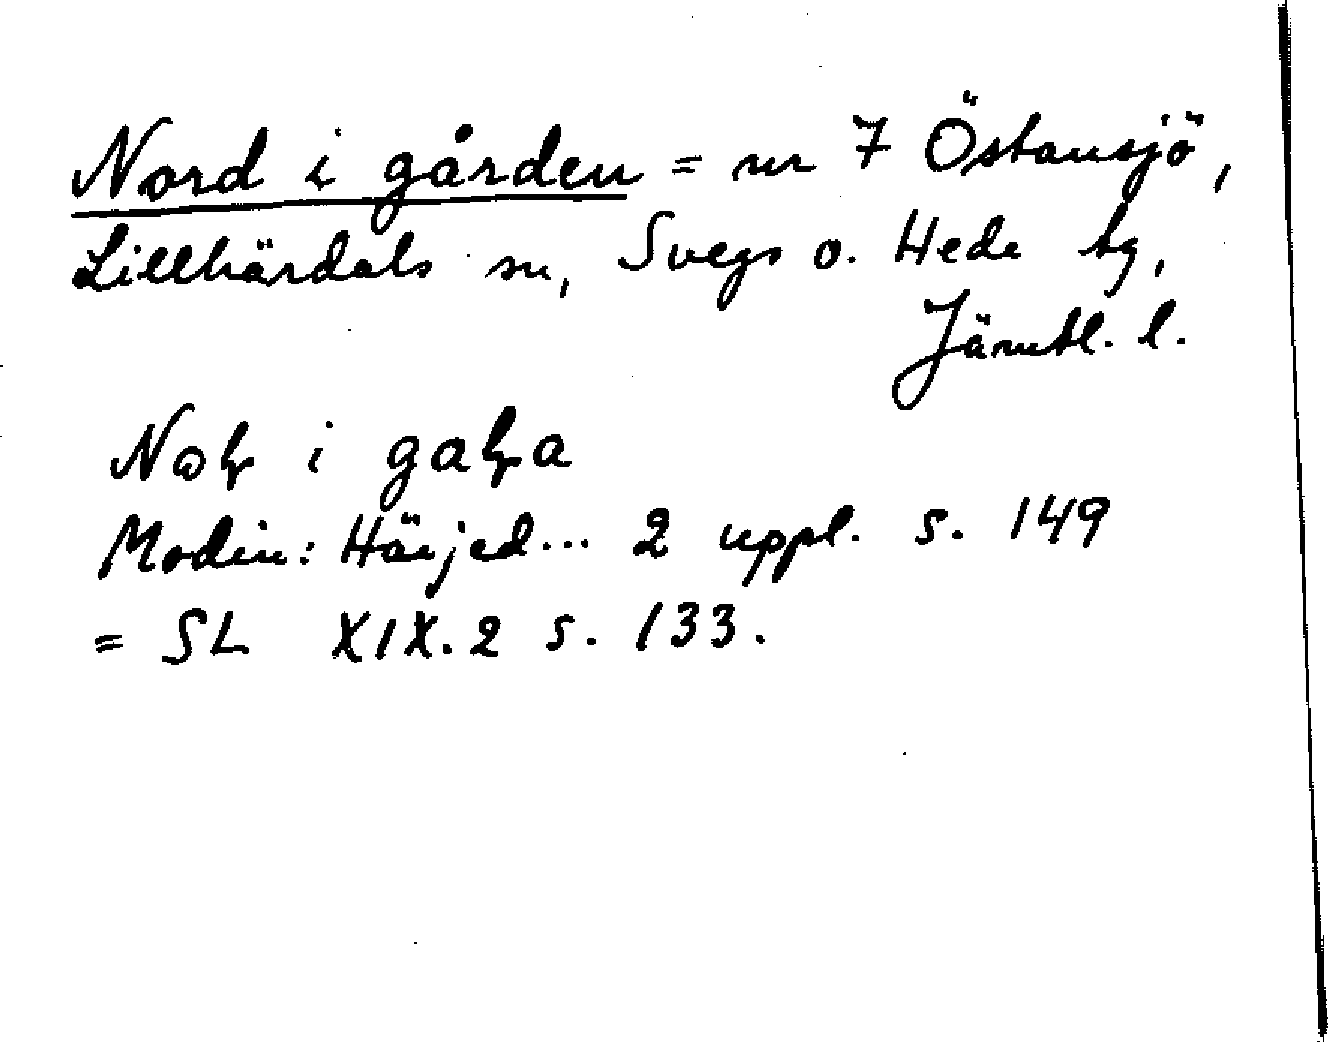 Nord i gården = nr 7 Östansjö,
Lillhärdals sn, Svegs o. Hede tg,
Jämtl. l.
i
Modin: Härjed... 2 uppl. s. 149
= SL XIX.2 s. 133.